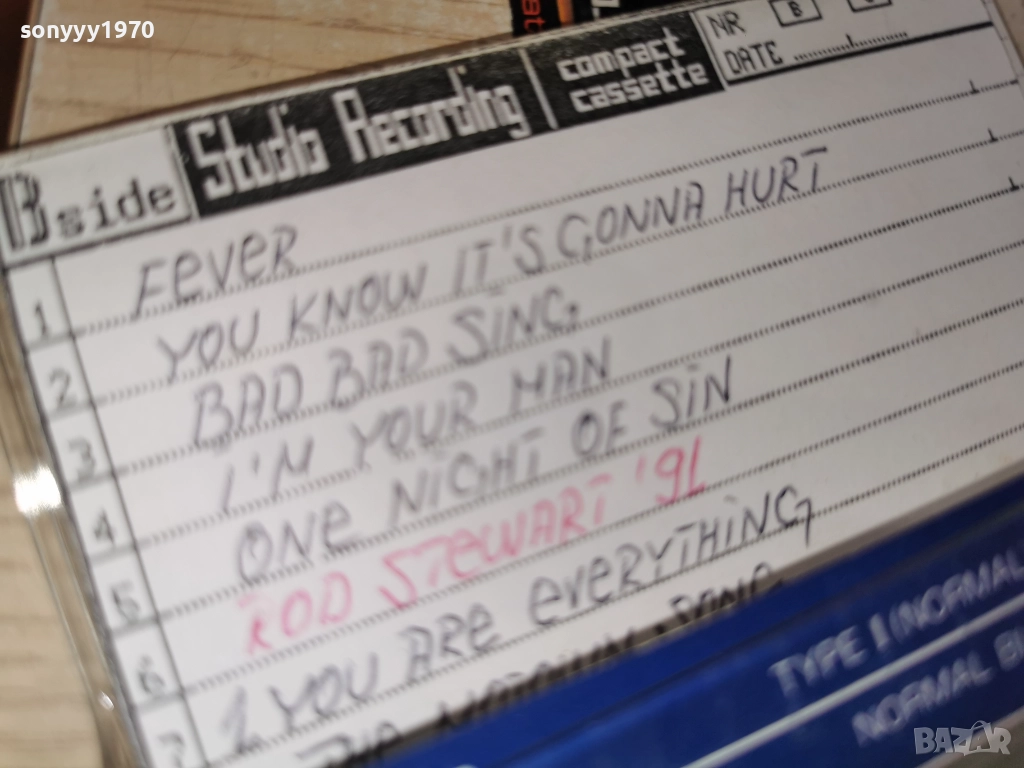 sonyyy1970
B side
Studio Recording
compact cassette
NR B
DATE
1 FEVER
2 YOU KNOW IT'S GONNA HURT
3 BAD BAD SING
4 I'M YOUR MAN
5 ONE NIGHT OF SIN
6 ROD STEWART '91
7 1 YOU ARE EVERYTHING
TYPE I (NORMAL
NORMAL
BAZAR